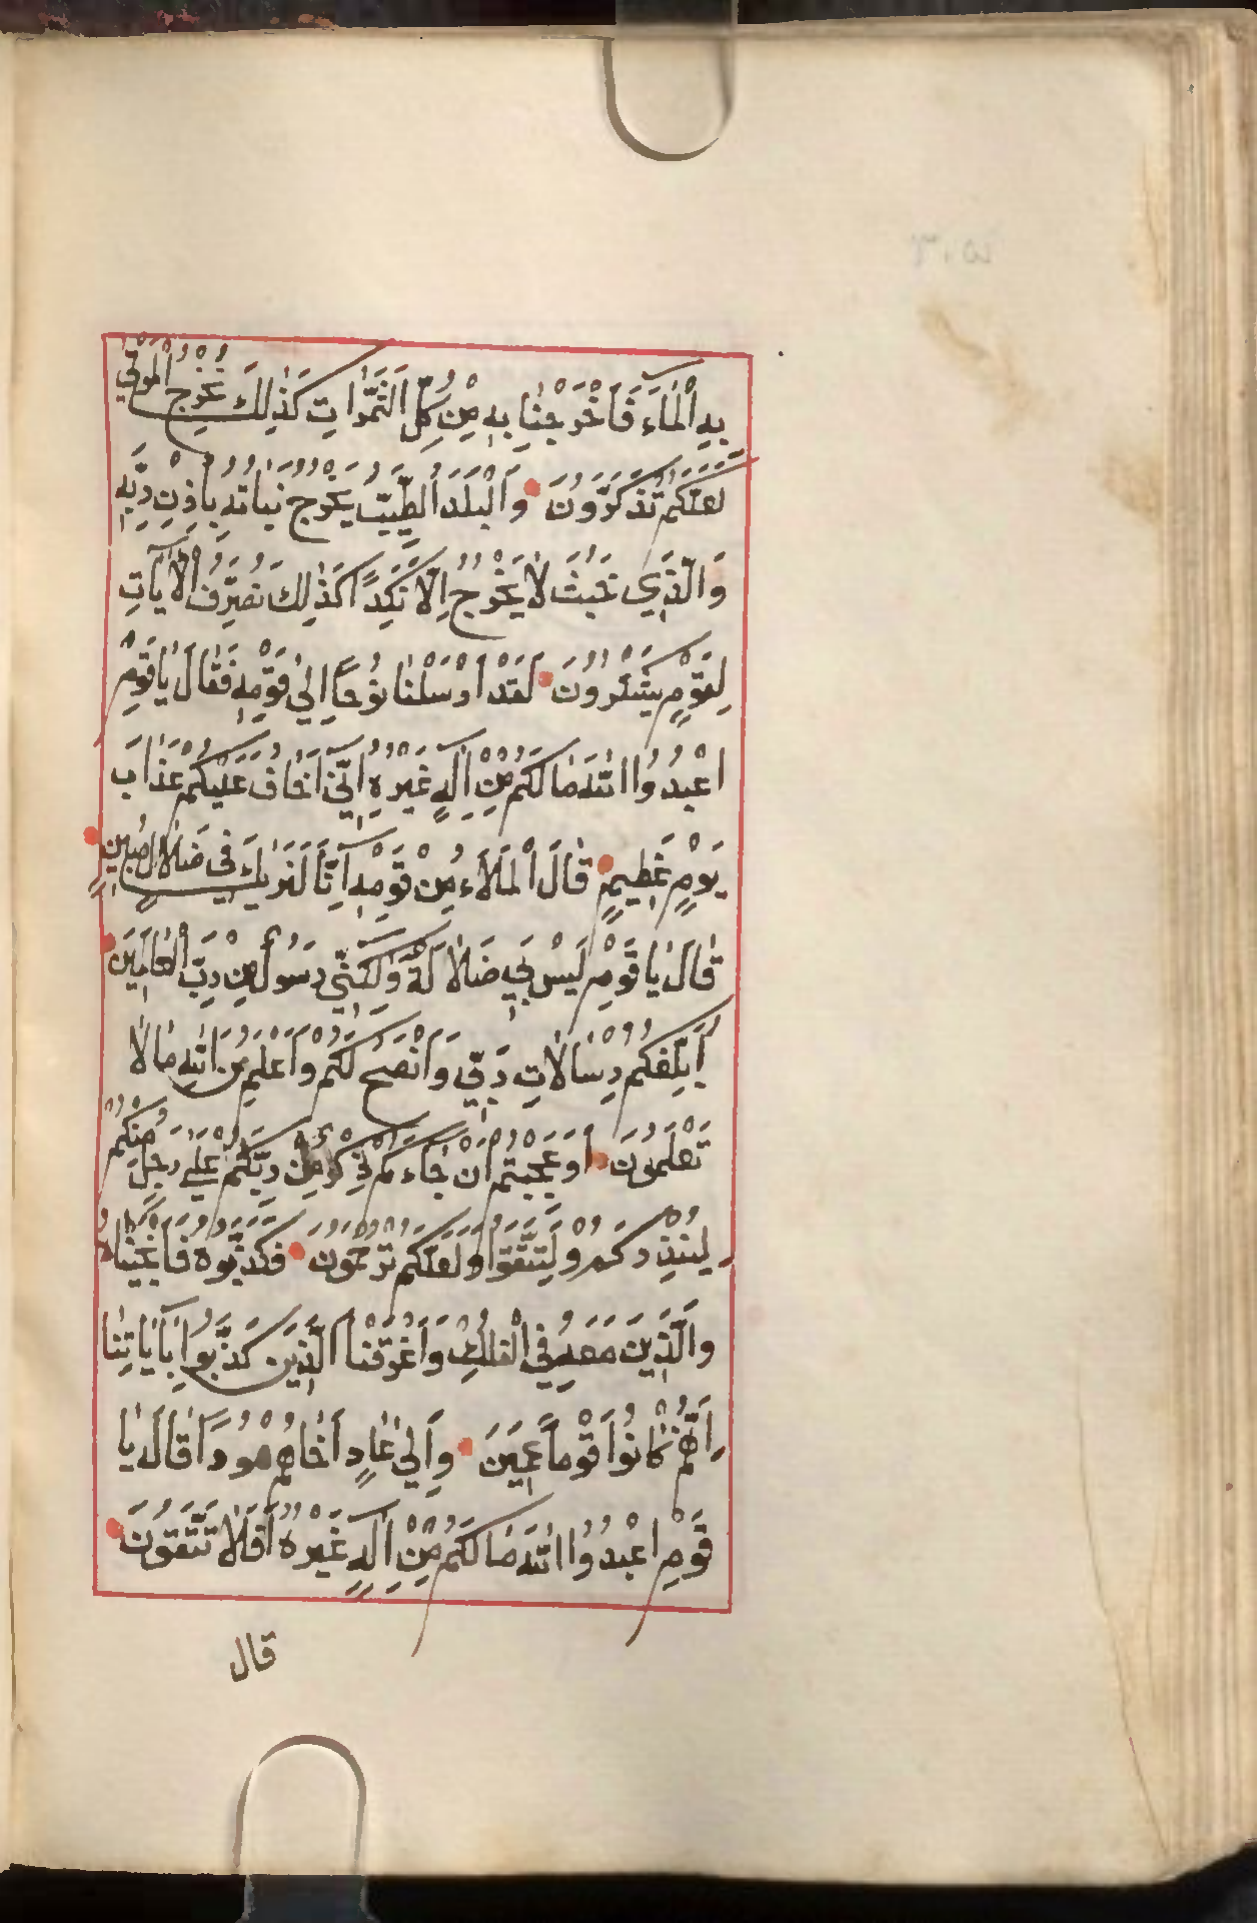 بِهِ الْمَاءَ فَاَخْرَجْنَا بِهِ مِنْ كُلِّ الثَّمَرَاتِ كَذٰلِكَ نُخْرِجُ الْمَوْتٰي
لَعَلَّكُمْ تَذَكَّرُونَ وَالْبَلَدُ الطَّيِّبُ يَخْرُجُ نَبَاتُهُ بِاِذْنِ رَبِّهِ
وَالَّذِي خَبُثَ لَا يَخْرُجُ اِلَّا نَكِدًا كَذٰلِكَ نُصَرِّفُ الْاٰيَاتِ
لِقَوْمٍ يَشْكُرُونَ لَقَدْ اَرْسَلْنَا نُوحًا اِلٰي قَوْمِهِ فَقَالَ يَا قَوْمِ
اعْبُدُوا اللّٰهَ مَا لَكُمْ مِنْ اِلٰهٍ غَيْرُهُ اِنِّي اَخَافُ عَلَيْكُمْ عَذَابَ
يَوْمٍ عَظِيمٍ قَالَ الْمَلَاُء مِنْ قَوْمِهِ اِنَّا لَنَرٰيكَ فِي ضَلَالٍ مُبِينٍ
قَالَ يَا قَوْمِ لَيْسَ بِي ضَلَالَةٌ وَلٰكِنِّي رَسُولٌ مِنْ رَبِّ الْعَالَمِينَ
اُبَلِّغُكُمْ رِسَالَاتِ رَبِّي وَاَنْصَحُ لَكُمْ وَاَعْلَمُ مِنَ اللّٰهِ مَا لَا
تَعْلَمُونَ اَوَعَجِبْتُمْ اَنْ جَاءَكُمْ ذِكْرٌ مِنْ رَبِّكُمْ عَلٰي رَجُلٍ مِنْكُمْ
لِيُنْذِرَكُمْ وَلِتَتَّقُوا وَلَعَلَّكُمْ تُرْحَمُونَ فَكَذَّبُوهُ فَاَنْجَيْنَاهُ
وَالَّذِينَ مَعَهُ فِي الْفُلْكِ وَاَغْرَقْنَا الَّذِينَ كَذَّبُوا بِاٰيَاتِنَا
اِنَّهُمْ كَانُوا قَوْمًا عَمِينَ وَاِلٰي عَادٍ اَخَاهُمْ هُودًا قَالَ يَا
قَوْمِ اعْبُدُوا اللّٰهَ مَا لَكُمْ مِنْ اِلٰهٍ غَيْرُهُ اَفَلَا تَتَّقُونَ
قال